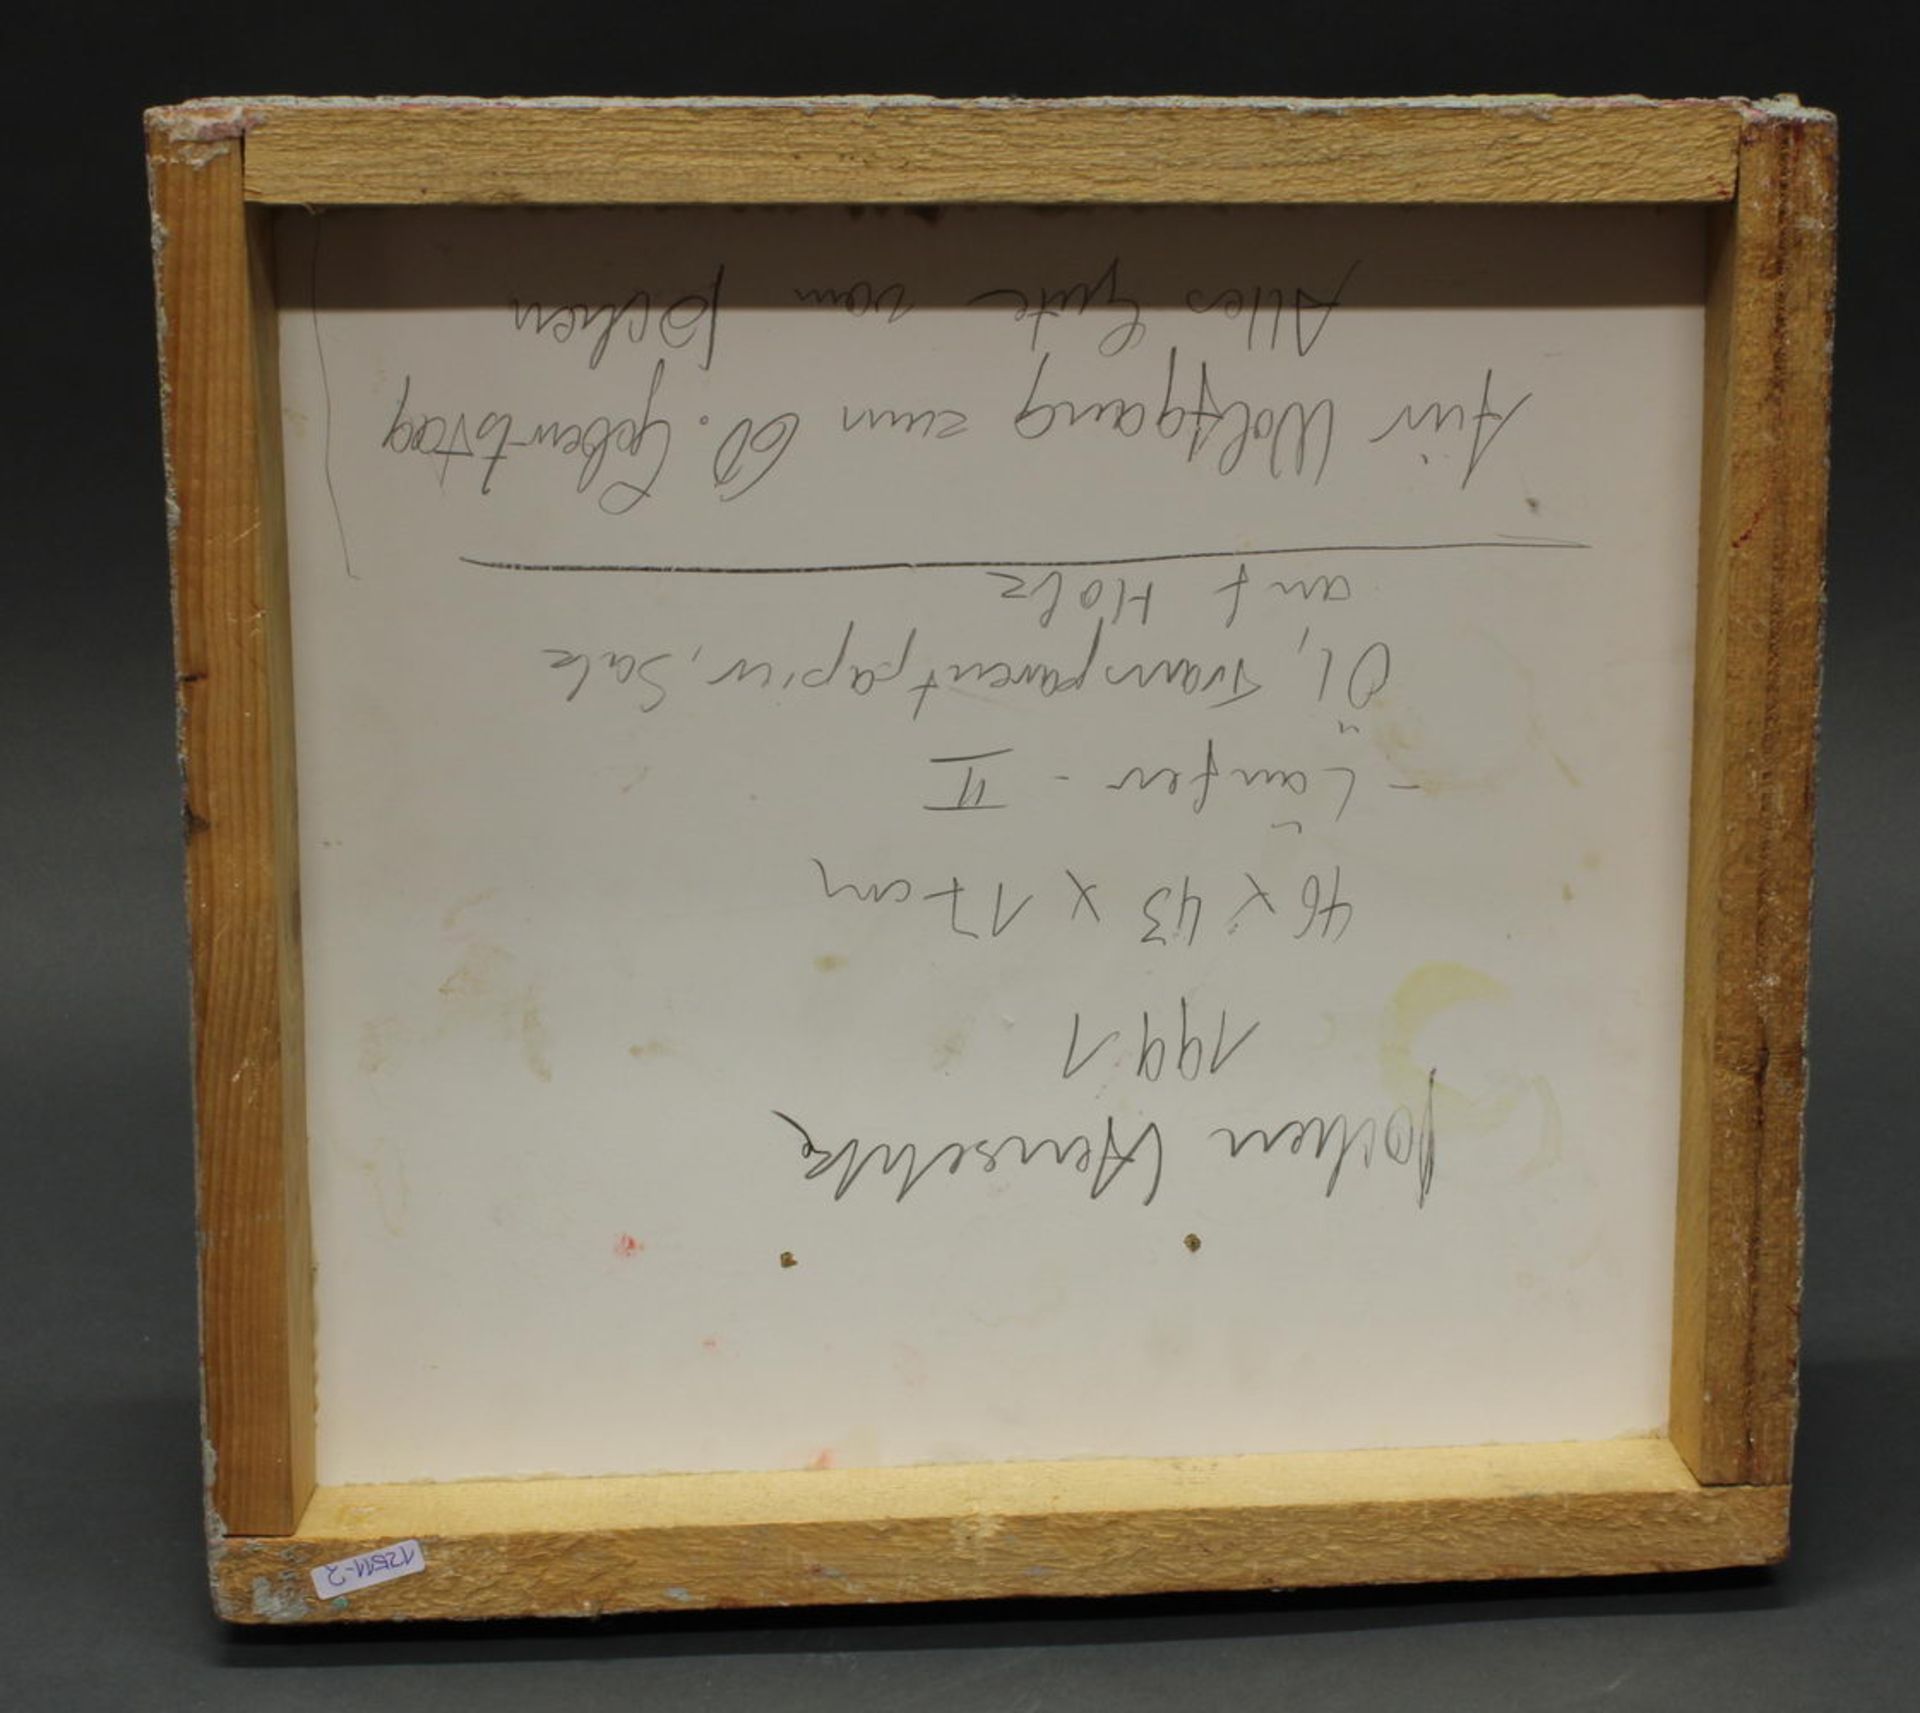 Jochen Henschke
1991
46 x 43 x 17 cm
- Läufer - II
Öl, Transparentpapier, Salz
auf Holz
Für Wolfgang zum 60. Geburtstag
Alles Gute vom Jochen
12511-2